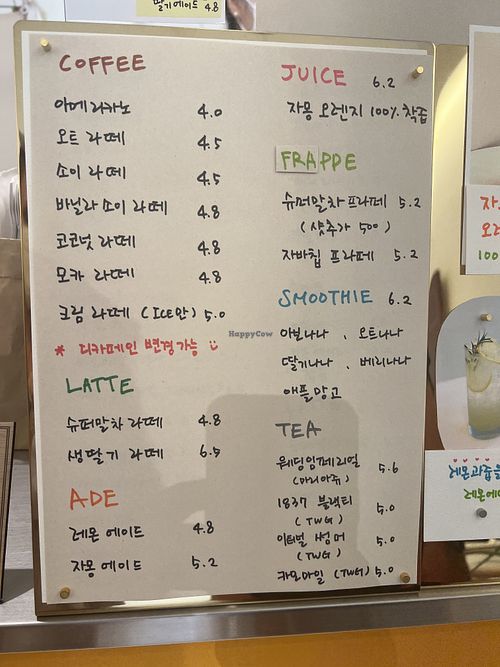 딸기에이드 4.8
COFFEE
아메리카노 4.0
오트 라떼 4.5
소이 라떼 4.5
바닐라 소이 라떼 4.8
코코넛 라떼 4.8
모카 라떼 4.8
크림 라떼 (ICE만) 5.0
* 디카페인 변경가능
LATTE
슈퍼말차 라떼 4.8
생딸기 라떼 6.5
ADE
레몬 에이드 4.8
자몽 에이드 5.2
JUICE 6.2
자몽 오렌지 100% 착즙
FRAPPE
슈퍼말차 프라페 5.2
(샷추가 500)
자바칩 프라페 5.2
SMOOTHIE 6.2
아보나나 , 오트나나
딸기나나 , 베리나나
애플망고
TEA
웨딩임페리얼 5.6
(마리아쥬)
1837 블랙티 5.0
(TWG)
이터널 썸머 5.0
(TWG)
카모마일 (TWG) 5.0
HappyCow
100